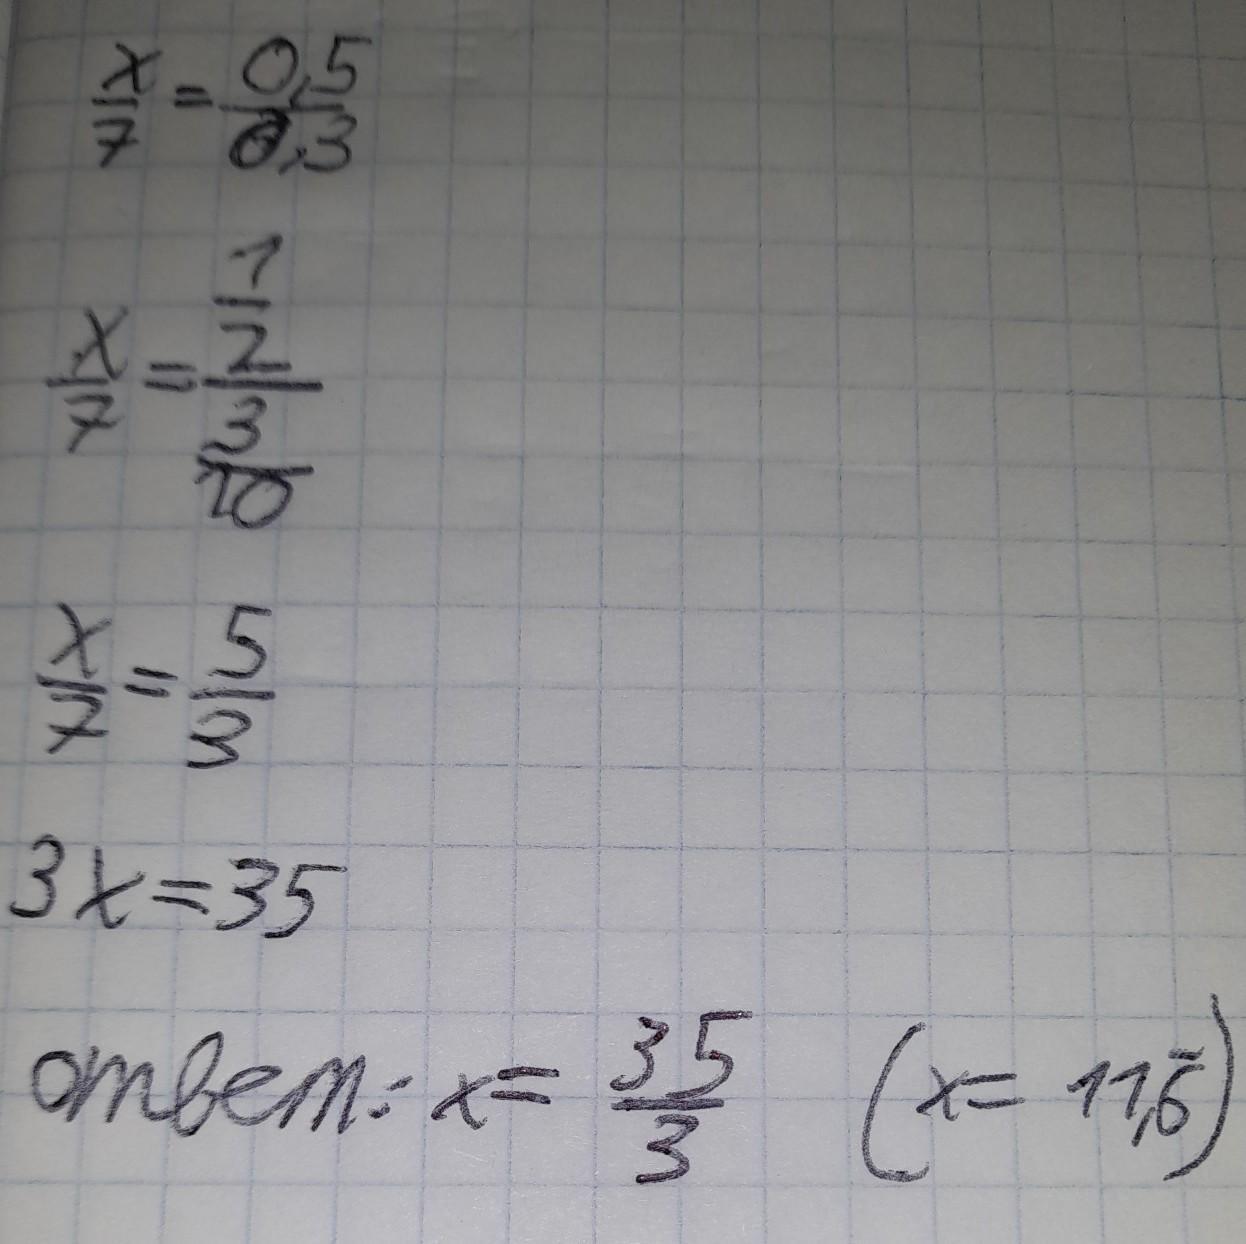 x/7 = 0,5/0,3
x/7 = (1/2)/(3/10)
x/7 = 5/3
3x=35
ответ: x = 35/3 (x = 11,6̅)